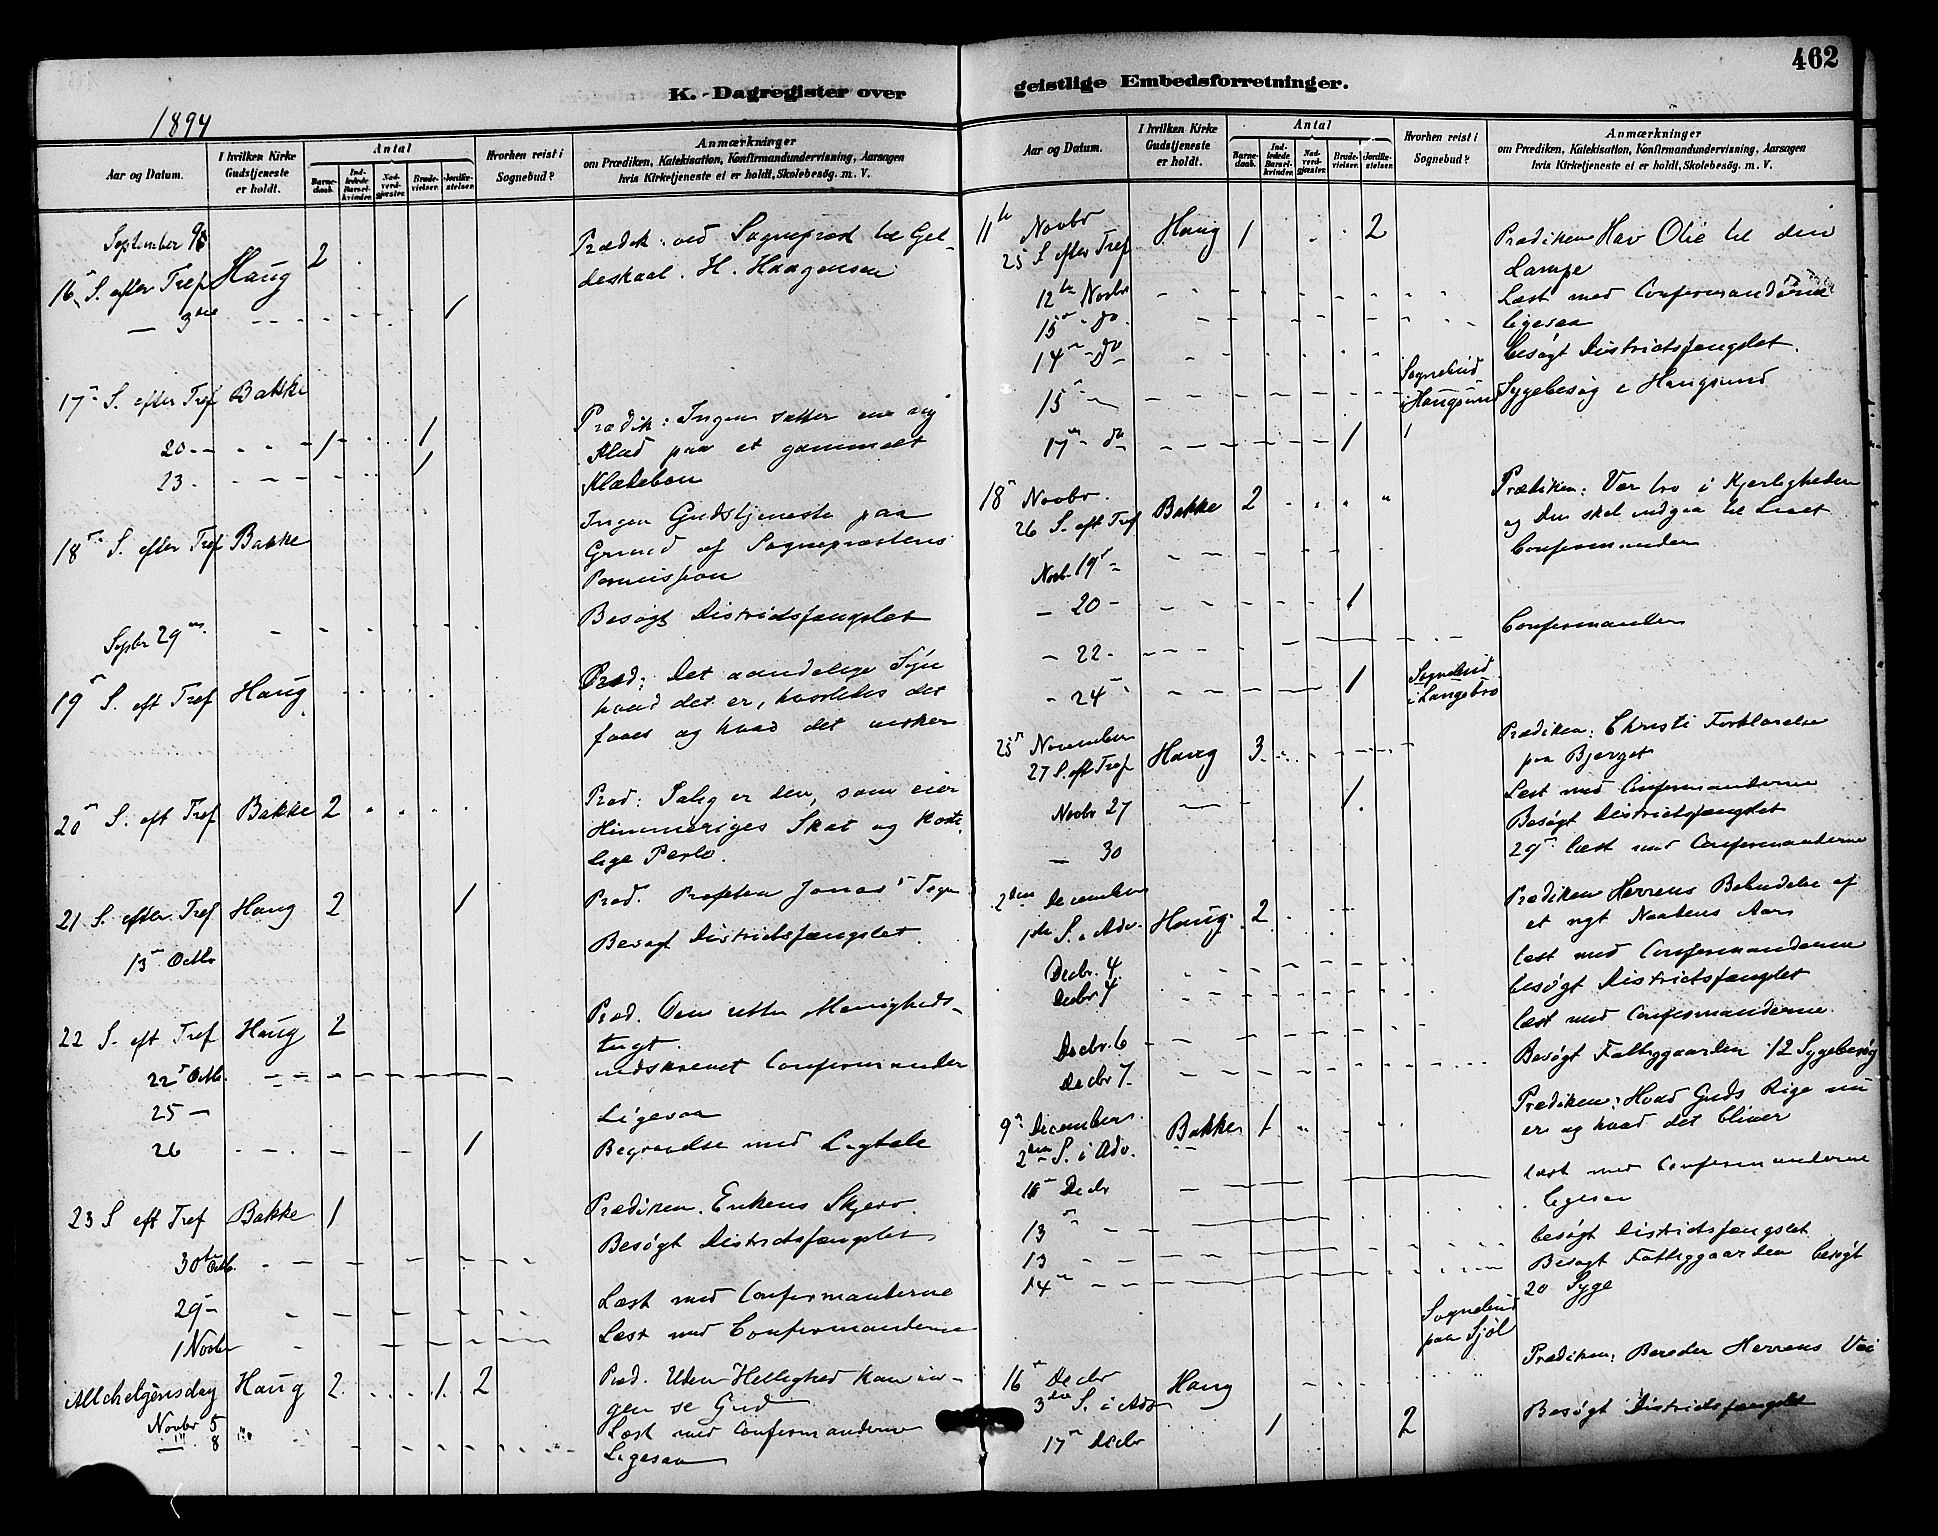 462
K. Dagregister over
geistlige Embedsforretninger.
1894
Aar og Datum.
I hvilken Kirke
Gudstjeneste
er holdt.
Antal
Barne-
daab.
Ind-
ledede
Barsel-
kvinder.
Nad-
verd-
gjæster.
Brude-
vielser.
Jordfæ-
stelser.
Hvorhen reist i
Sognebud?
Anmærkninger
om Prædiken, Katekisation, Konfirmandundervisning, Aarsagen
hvis Kirketjeneste ei er holdt, Skolebesøg. m. V.
September
16 S. efter Tref Haug 2
Prædik: ved Sogneprest
H. Haagensen
1
17 S. efter Tref Bakke
Prædik: Ingen sætter en ny
Klud paa et gammelt
Klædebon
20 - 1 1
23 - 1
18 S. efter Tref Bakke
Ingen Gudstjeneste paa
Grund af Sogneprestens
Permission
Septbr 29 Besøgt Districtsfængslet
19 S. eft Tref Haug
Præd: Det aandelige Syn
hvad det er, hvorledes det
faaes og hvad det virker
20 S. eft Tref Bakke 2
Præd: Salig er den, som eier
Himmeriges Skat og koste
lige Perle.
21 S. efter Tref Haug 2 1
Præd. Profeten Jonas' Tegn
13 Octbr Besøgt Districtsfængslet.
22 S. eft Tref Haug 2
Præd. Den rette Menigheds-
tugt.
22 Octb. indskrevet Confirmander
25 - Ligesaa
26 1 Begravelse med Ligtale
23 S eft Tref Bakke 1
Prædiken. Enkens Skjerv.
30te Octb. Besøgt Districtsfængslet
29 - Læst med Confirmanderne
1 Novbr Læst med Confirmanderne
Allehelgensdag Haug 2 1 2
Præd. Uden Hellighed kan in-
gen se Gud
Novbr 5 Læst med Confirmanderne
8 Ligesaa
Aar og Datum.
I hvilken Kirke
Gudstjeneste
er holdt.
Antal
Barne-
daab.
Ind-
ledede
Barsel-
kvinder.
Nad-
verd-
gjæster.
Brude-
vielser.
Jordfæ-
stelser.
Hvorhen reist i
Sognebud?
Anmærkninger
om Prædiken, Katekisation, Konfirmandundervisning, Aarsagen
hvis Kirketjeneste ei er holdt, Skolebesøg. m. V.
11te Novbr
25 S efter Tref Haug 1 2
Prædiken Hav Olie til din
Lampe
12te Novbr Læst med Confirmanderne
13 do. ligesaa
14 do besøgt Districtsfængslet.
15 Sognebud
i Haugsund Sygebesøg i Haugsund
17 do 1 1
18 Novbr.
26 S. eft Tref Bakke 2
Prædiken: Vær tro i Kjerligheden
og Du skal indgaa til Livet
Novb. 19 Confirmanden
- 20 - 1
- 22 - Confirmanden
- 24 1 Sognebud
i Langebro
25 November
27 S. eft Tref Haug 3
Prædiken: Christi Forklarelse
paa Bjerget
Læst med Confirmanderne
Novbr 27 1 Besøgt Districtsfængslet
- 30 29 læst med Confirmanderne
2den December
1ste S. i Adv. Haug 2
Prædiken Herrens Bebudelse af
et nyt Naadens Aar
Decbr. 4 læst med Confirmanderne
Decbr 4 besøgt Districtsfænglet
Decbr. 6 læst med Confirmanderne.
Decbr 7 Besøgt Fattiggaarden 12 Sygebesøg
9 December
2den S. i Adv. Bakke 1
Prædiken: Hvad Guds Rige nu
er og hvad det bliver
Decbr læst med Confirmanderne
13 ligesaa
13 besøgt Districtsfængslet
14 Besøgt Fattiggaarden besøgt
20 Syge
Sognebud
paa Sjøl
16 Decbr
3die S. i Adv Haug
Prædiken: Bereder Herrens Vei
17 Decbr 1 2 Besøgt Districtsfængslet